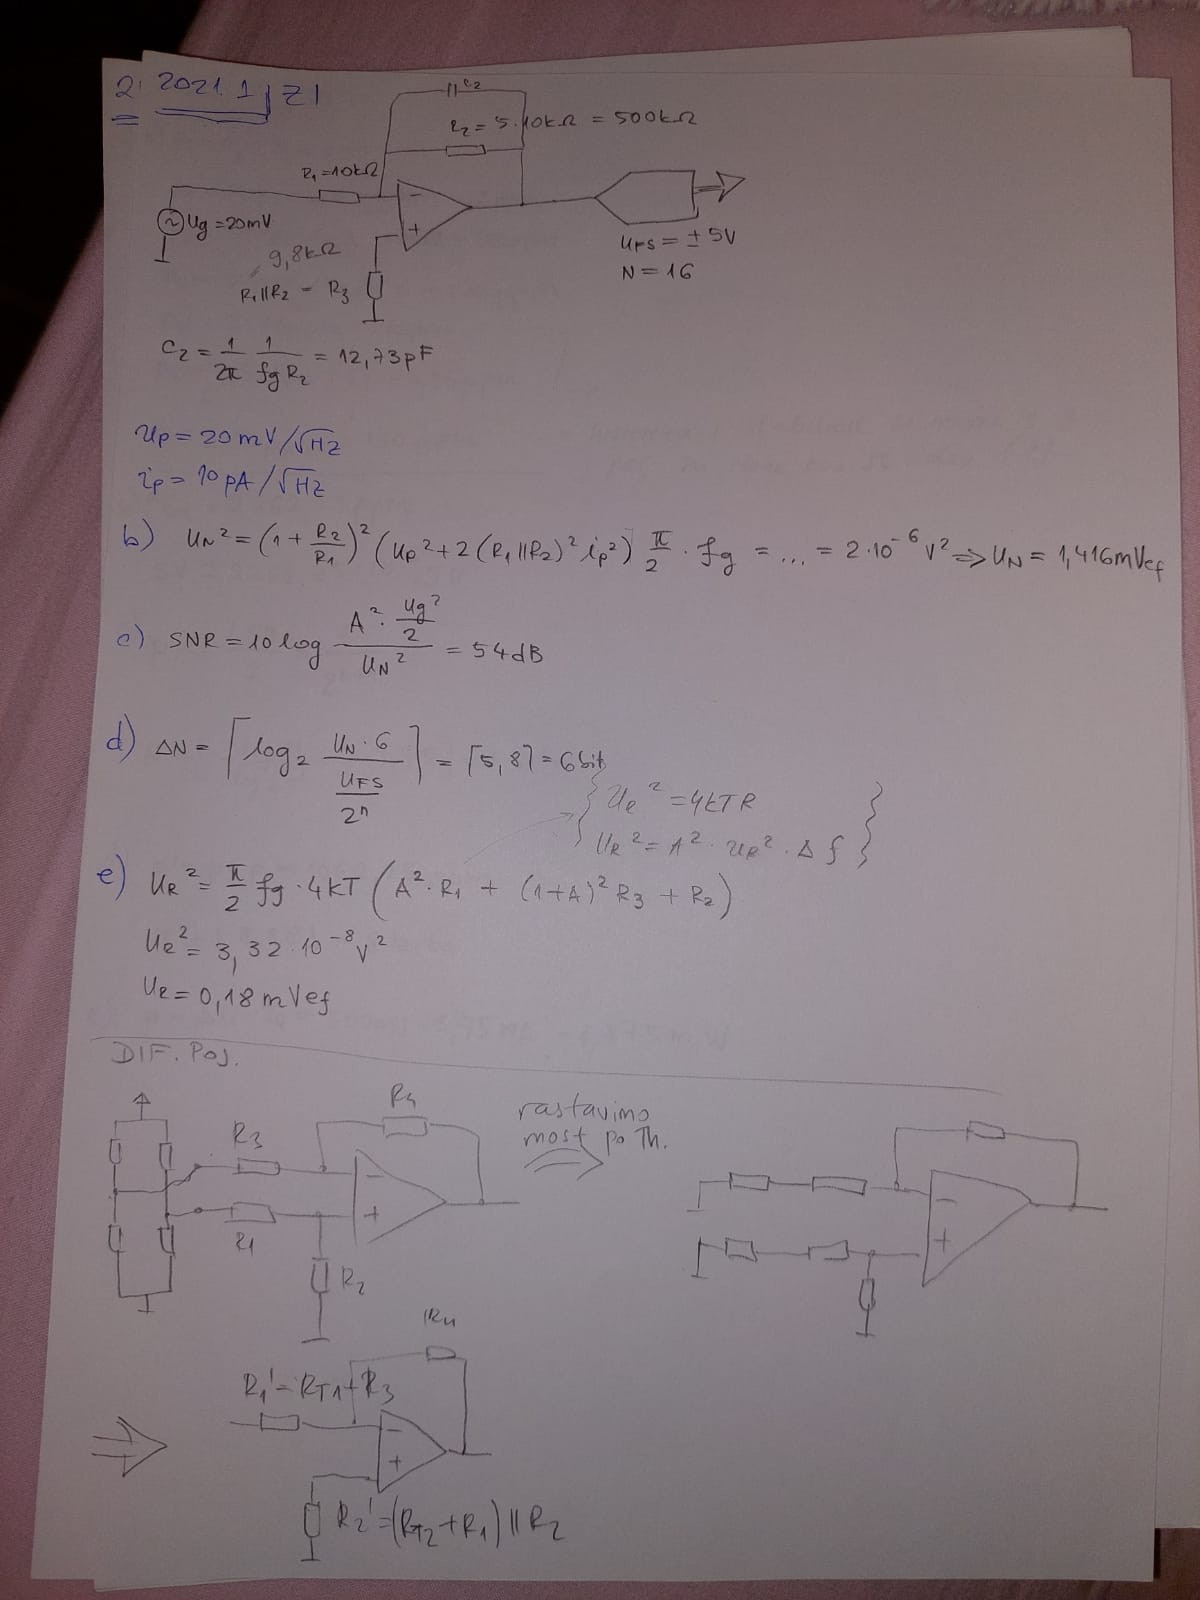 2. 2021. 1, Z1
C2
R2 = 5·10kΩ = 500kΩ
R1 = 10kΩ
-
+
~
Ug = 20mV
UFS = ± 5V
N = 16
9,8kΩ
R1 || R2 = R3
C2 = 1/2π 1/fg R2 = 12,73pF
Up = 20 mV/√Hz
ip = 10 pA/√Hz
b) UN² = (1 + R2/R1)² (Up² + 2 (R1 || R2)² ip²) π/2 · fg = ... = 2·10⁻⁶ V² => UN = 1,416mVef
c) SNR = 10 log (A² · Ug²/2)/UN² = 54dB
d) ΔN = ⌈log2 (UN · 6)/(UFS/2ⁿ)⌉ = ⌈5,8⌉ = 6 bit
{ Ue² = 4kTR
UR² = A² · UR² · Δf }
e) UR² = π/2 fg · 4kT (A² · R1 + (1+A)² R3 + R2)
UR² = 3,32·10⁻⁸ V²
UR = 0,18 mVef
DIF. POJ.
R4
R3
-
+
R1
R2
rastavimo
most po Th.
-
+
R4
R1' = RT1 + R3
-
+
R2' = (RT2 + R1) || R2